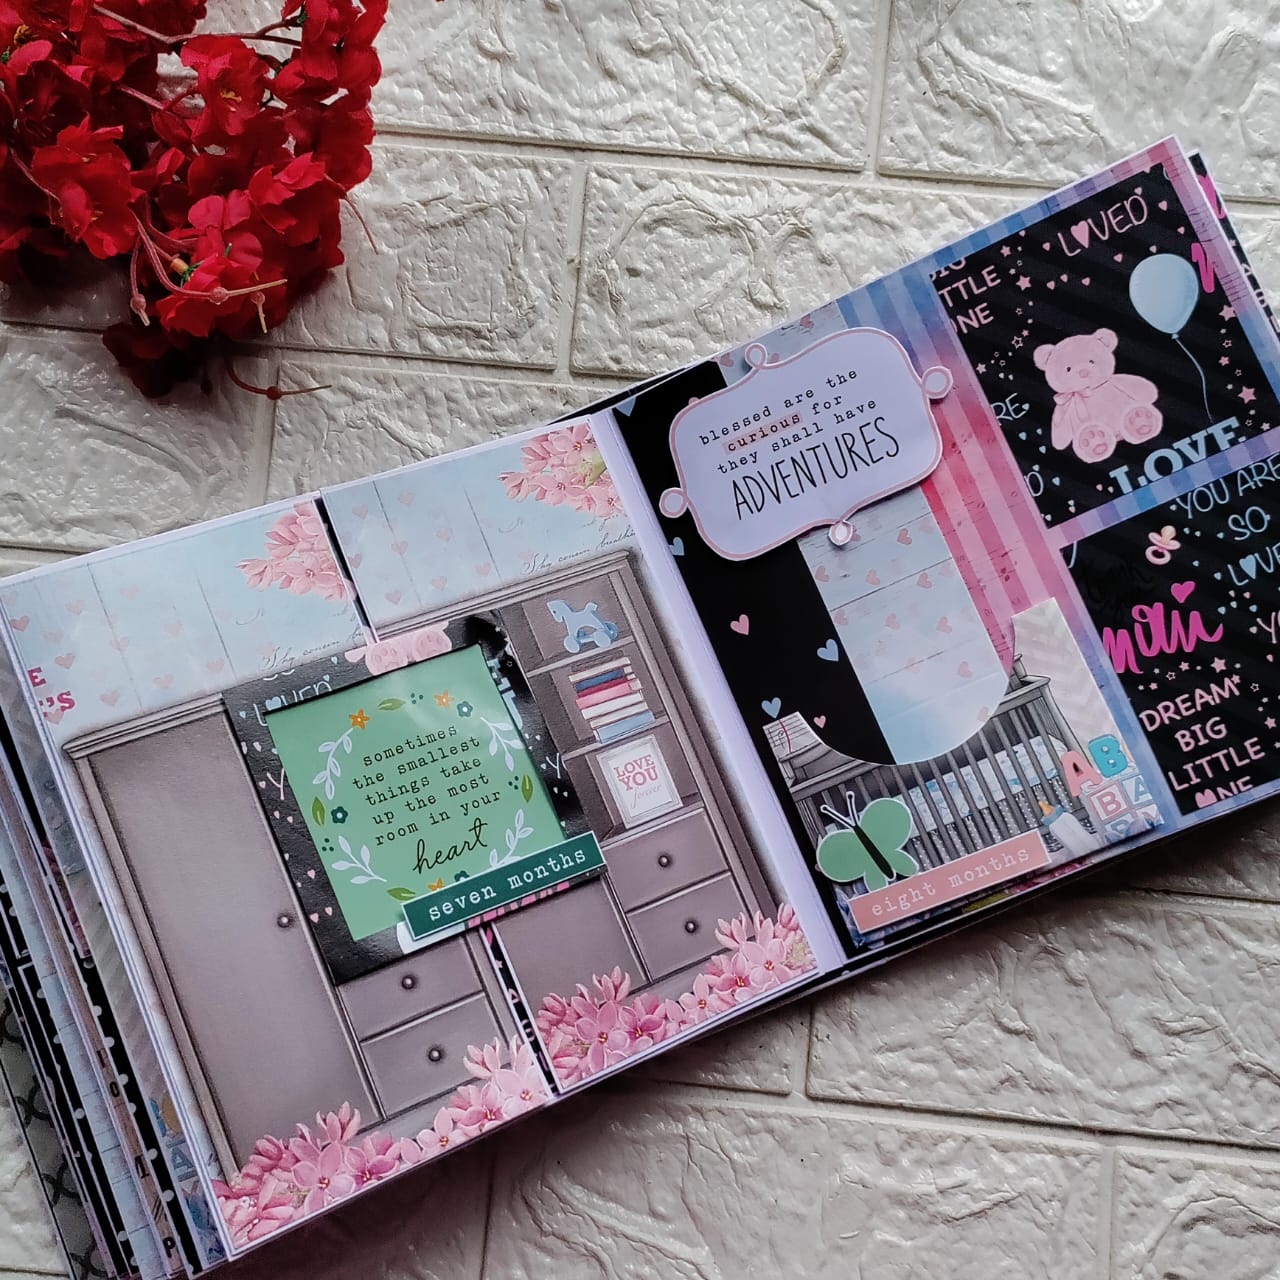 sometimes
the smallest
things take
up the most
room in your
heart
seven months
LOVED
LOVE
YOU
forever
blessed are the
curious for
they shall have
ADVENTURES
eight months
LOVED
TTLE
NE
RE
LOVE
YOU ARE
SO
LOVE
DREAM
BIG
LITTLE
ONE